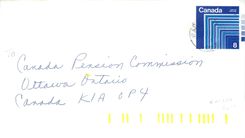 Canada
8
TO
Canada Pension Commission
Ottawa Ontario
Canada K1A 0P4